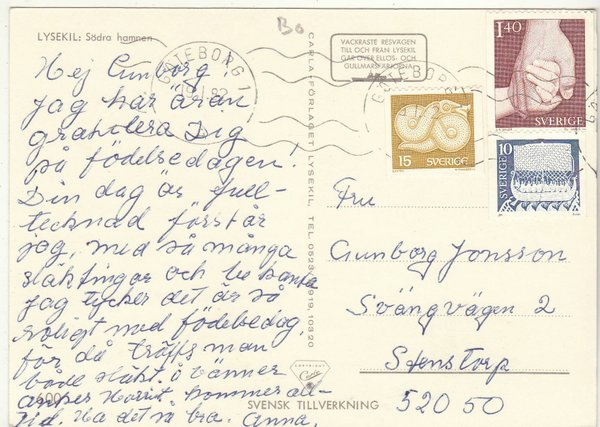 LYSEKIL: Södra hamnen
Bo
VACKRASTE RESVÄGEN
TILL OCH FRÅN LYSEKIL
GÅR ÖVER ELLOS- OCH
GULLMARSFÄRJORNA
GÖTEBORG 1
GÖTEBORG 1
1.40
SVERIGE
15 SVERIGE
SVERIGE 10
CARLA-FÖRLAGET LYSEKIL. TEL. 0523
Hej Gunborg
jag har äran
gratulera Dig
på födelsedagen!
Din dag är full-
tecknad förstår
jag, med så många
släktingar och bekanta
jag tycker det är så
roligt med födelsedag,
för då träffs man
både släkt. å vänner
Harriet kommer all-
tid. Ha det så bra. Anna.
Fru
Gunborg Jonsson
Svängvägen 2
Stenstorp
520 50
COPYRIGHT
Carla
SVENSK TILLVERKNING